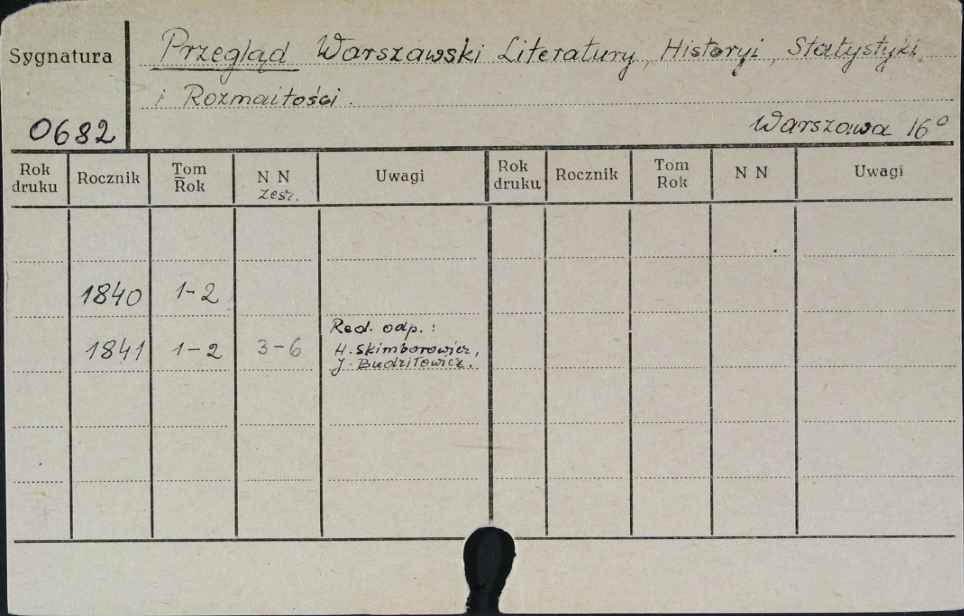 Sygnatura
Przegląd Warszawski Literatury, Historyi, Statystyki,
i Rozmaitości.
0682
Warszawa 16°
Rok druku Rocznik Tom Rok N N zesz. Uwagi Rok druku Rocznik Tom Rok N N Uwagi
1840 1-2
1841 1-2 3-6 Red. odp.:
H. Skimborowicz,
J. Budziłowicz.